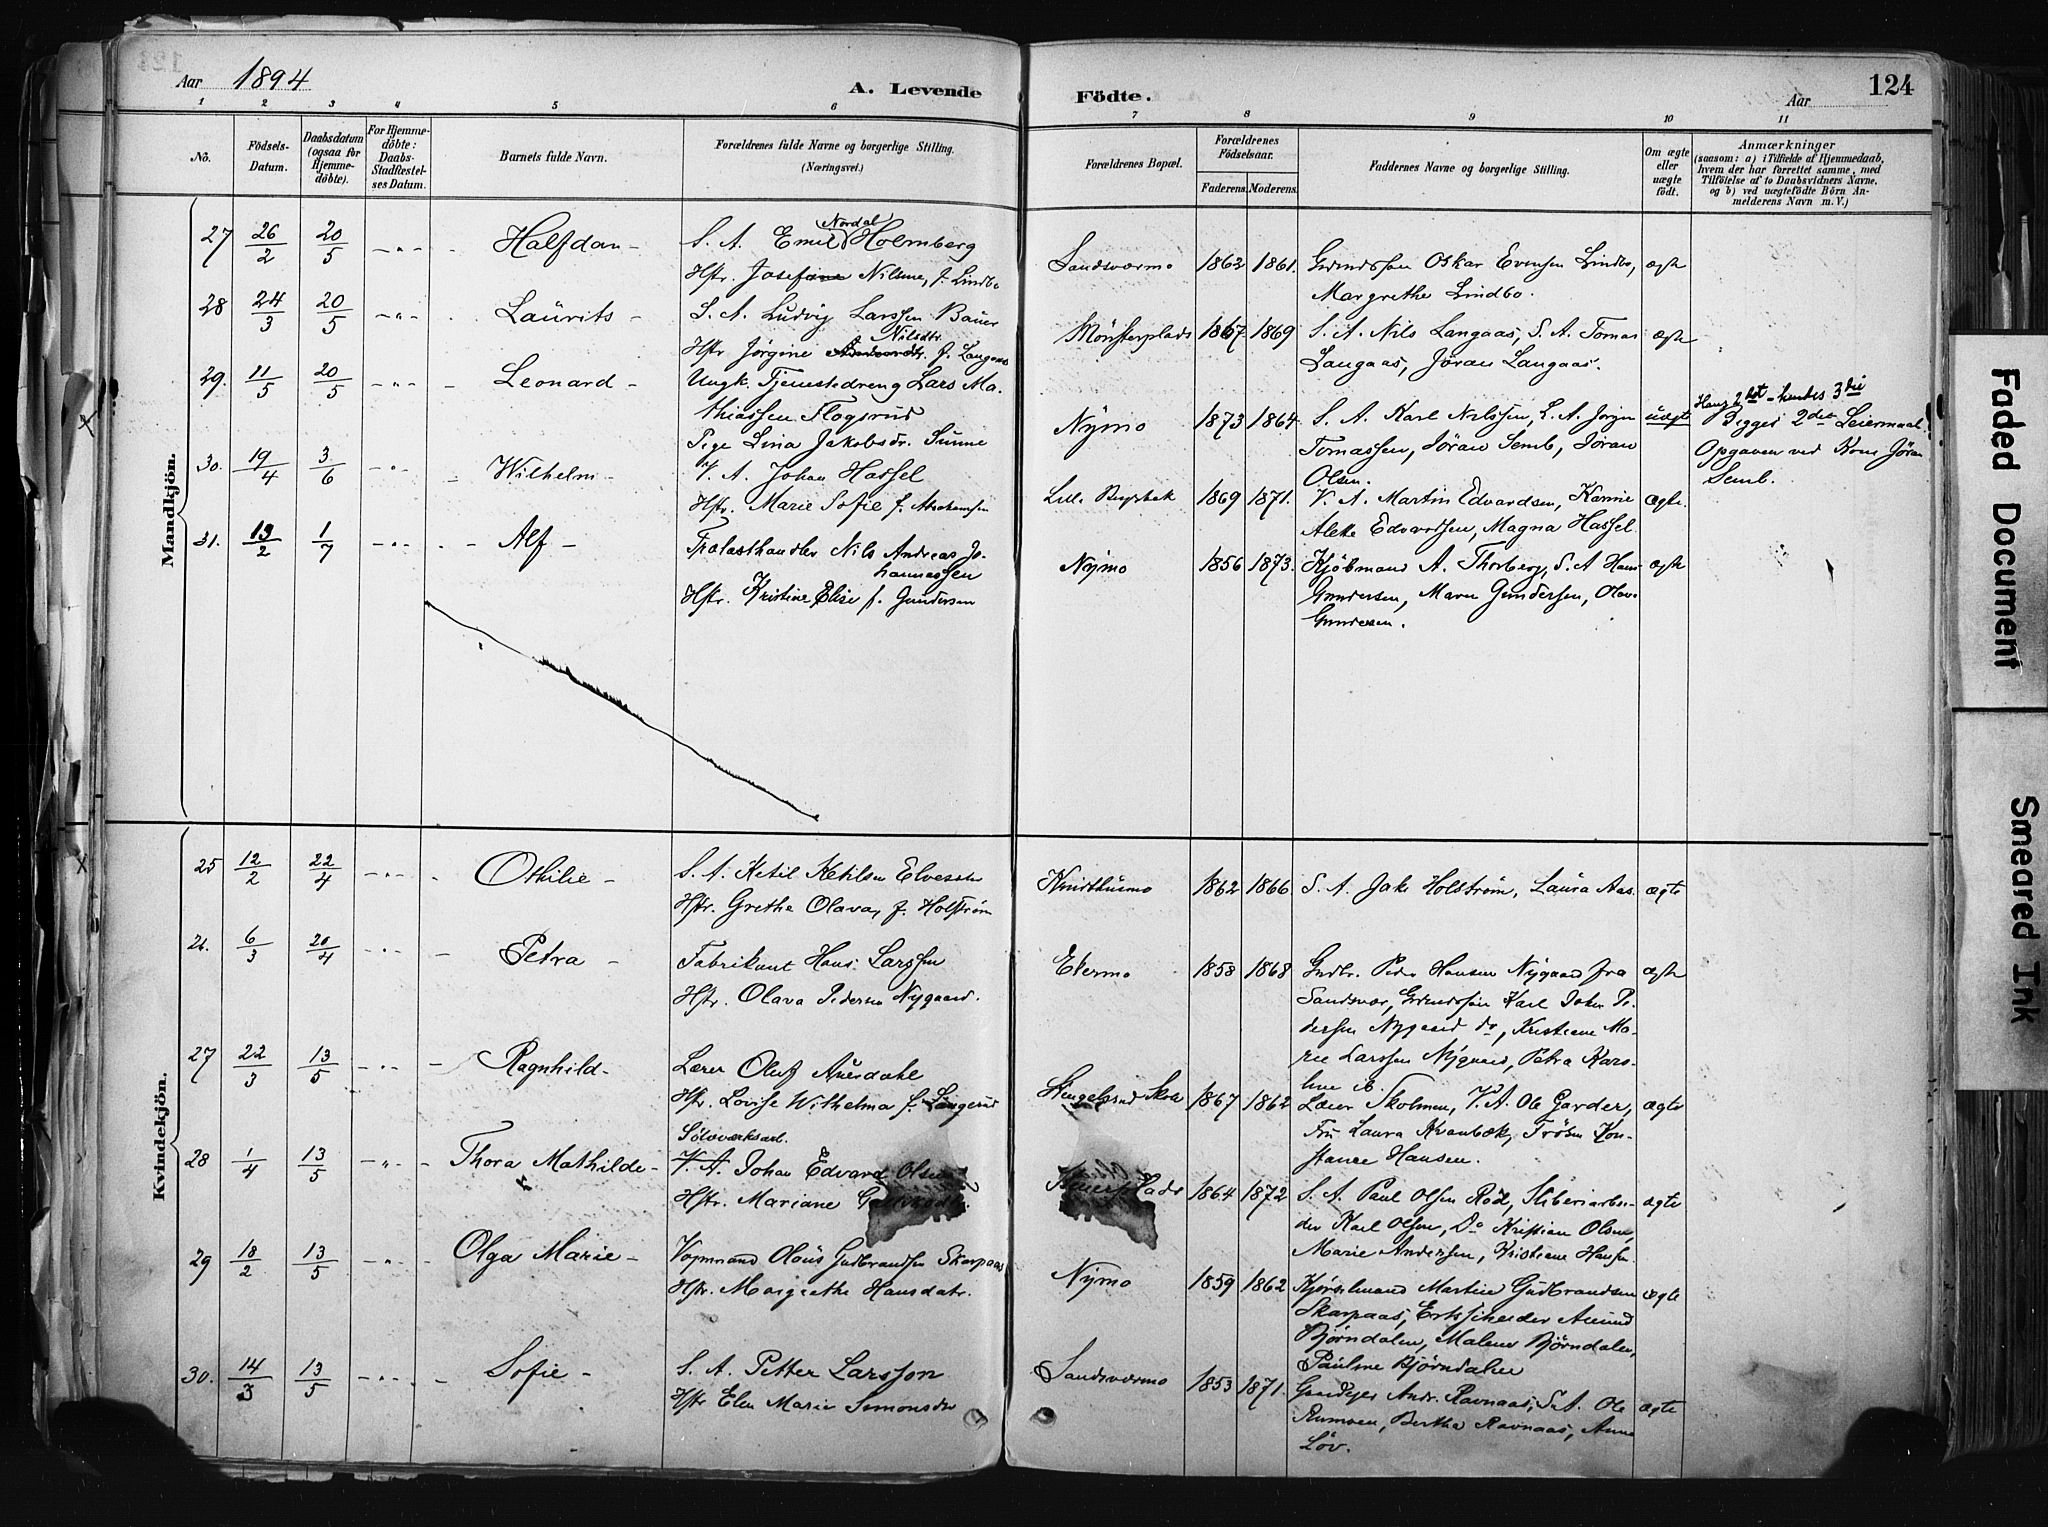 Aar 1894
A. Levende Födte.
Aar
124
1 2 3 4 5 6 7 8 9 10 11
No.
Födsels-Datum.
Daabsdatum (ogsaa for Hjemme-döbte).
For Hjemme-döbte: Daabs-Stadfestel-ses Datum.
Barnets fulde Navn.
Forældrenes fulde Navne og borgerlige Stilling.
(Næringsvei.)
Forældrenes Bopæl.
Forældrenes Födselsaar.
Faderens. Moderens.
Faddernes Navne og borgerlige Stilling.
Om ægte eller uægte födt.
Anmærkninger
(saasom: a) i Tilfælde af Hjemmedaab,
hvem der har forrettet samme, med
Tilföielse af to Daabsvidners Navne,
og b) ved uægtefödte Börn An-
melderens Navn m. V.)
Mandkjön.
27 26/2 20/5 Halfdan S. A. Emil Nordal Holmberg
Hstr. Josefane Nilsine, f. Lindbo
Sandsværmo 1862 1861. Grundssøn Oskar Evensen Lindbo,
Margrethe Lindbo. ægte
28 24/3 20/5 Laurits S. A. Ludvig Larssen Bauer
Hstr Jörgine Nilsdtr. f. Langaas
Mønsterplads 1867 1869 S. A. Nils Langaas, S. A. Tomas
Langaas, Jöran Langaas. ægte
29. 11/5 20/5 Leonard Ungk. Tjenestedreng Lars Ma-
thiassen Flogsrud
Pige Lina Jakobsdr. Sunne
Nymo 1873 1864. S. A. Karl Nilssen, S. A. Jörgen
Tomassen, Jöran Semb, Jöran
Olsen. uægte
Hans 2det - hendes 3die
Begges 2det Leiermaal.
Opgaven ved Kone Jöran
Semb.
30. 19/4 3/6 Wilhelm V. A. Johan Hassel
Hstr. Marie Sofie f. Abrahamsen
Lille 1869 1871. V. A. Martin Edvardsen, Kamie
Alette Edvardsen, Magna Hassel. ægte.
31. 13/2 1/7 Alf Trælasthandler Nils Andreas Jo-
hannessen
Hstr. Kristine Elise f. Gundersen
Nymo 1856 1873. Kjöbmand A. Thorberg, S. A Hans
Gundersen, Maren Gundersen, Olava
Gundersen. ægte
Kvindekjön.
25 12/2 22/4 Othilie S. A. Ketil Ketilsen Elvesæter
Hstr. Grethe Olava, f. Holström
Knuthusmo 1862 1866 S. A. Jak. Holström, Laura Aas. ægte
26. 6/3 20/4 Petra Fabrikant Hans Larssen
Hstr. Olava Pedersen Nygaard.
1858 1868 Gudbr. Peder Hansen Nygaard fra
Sandsvær, Grundssøn Karl Johan Pe-
dersen Nygaard do, Kristiane Ma-
rie Larssen Nygaard, Petra Kars-
ægte
27 22/3 13/5 Ragnhild Lærer Oluf Auerdahl
Hstr. Lovise Wilhelma f. Langerud
Hengelsrud Skole 1867 1862 Lærer Skolmen, V. A. Ole Garder,
Fru Laura Kvanbæk, Fröken Kon-
stance Hansen. ægte
28 1/4 13/5 Thora Mathilde Sölvværksarb.
V. A. Johan Edvard Olsen
Hstr. Mariane
1864 1872 S. A. Paul Olsen Röd, Sliberiarbei-
der Karl Olsen, Do Kristian Olsen,
Marie Andersen, Kristiane Hansen. ægte
29 18/2 13/5 Olga Marie Vognmand Olaus Gudbrandsen Skarpaas
Hstr. Margrethe Hansdatr.
Nymo 1859 1862 Kjörselmand Martin Gudbrandsen
Skarpaas, Ertsscheider Amund
Björndalen, Malene Björndalen,
Pauline Björndalen ægte
30. 14/3 13/5 Sofie S. A. Petter Larsson
Hstr Elen Marie Simonsdr
Sandsværmo 1853 1871. Gaardeier Andr. Ravnaas, S. A. Ole
Rumoen, Berthe Ravnaas, Anne
Löv. ægte
Faded Document
Smeared Ink